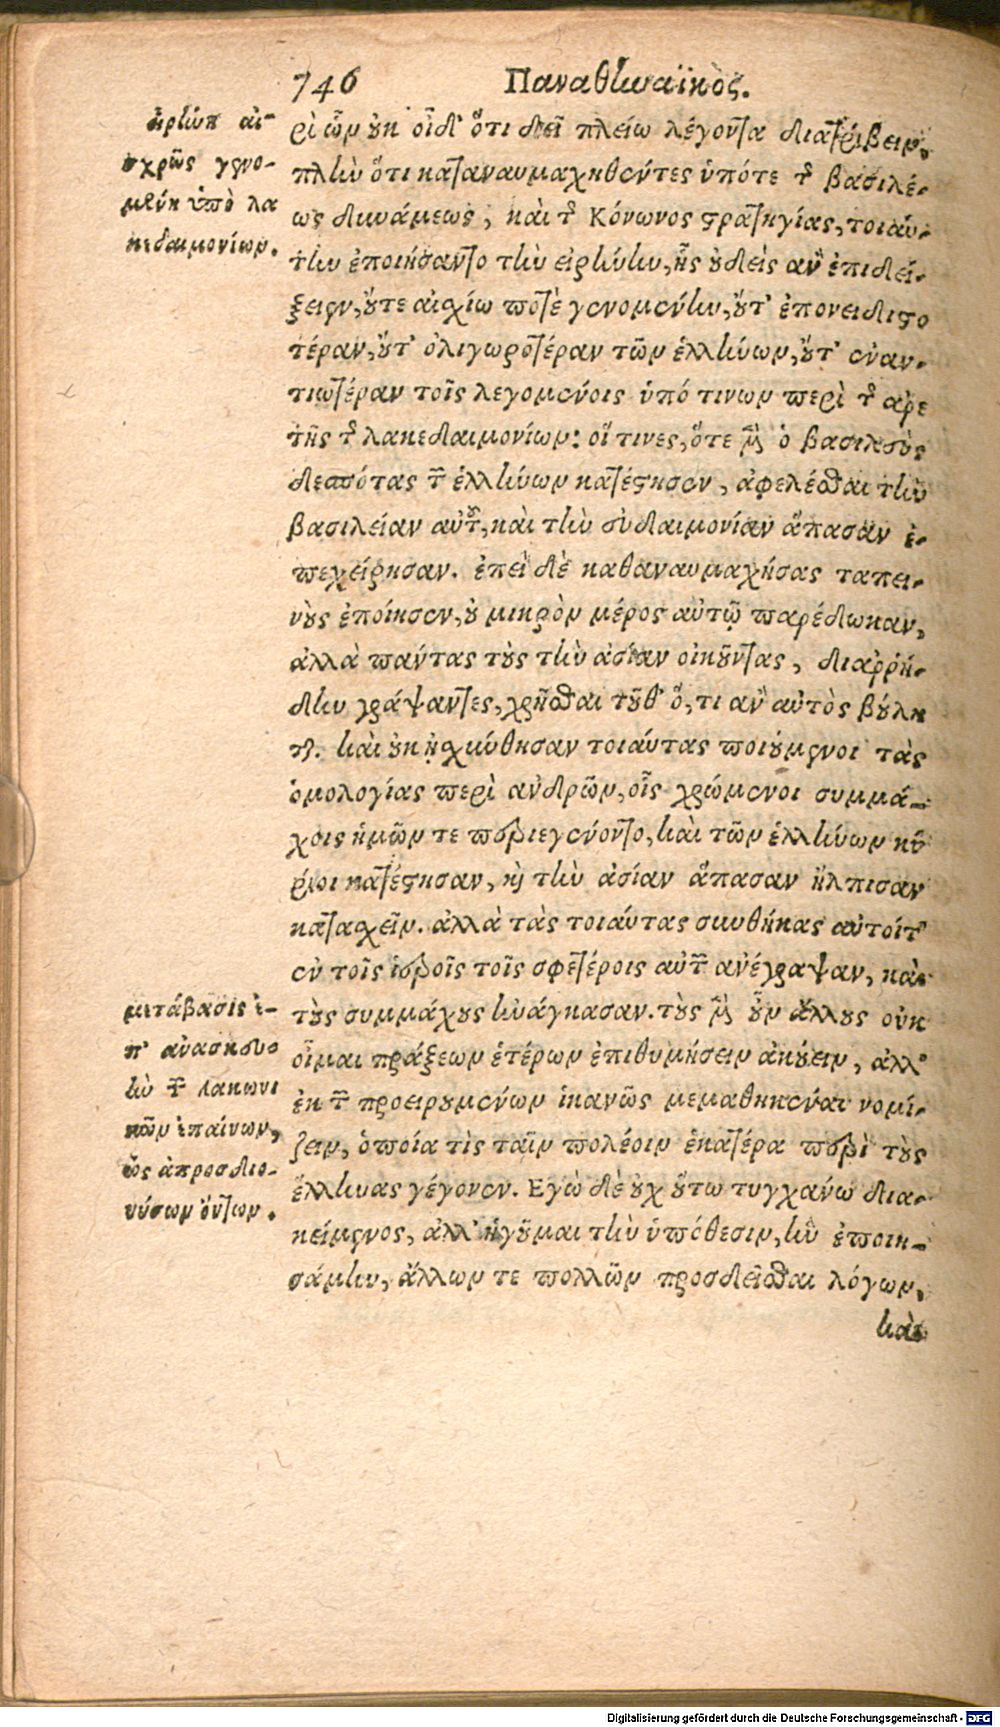 746 Παναθηναϊκὸς.
εἰρήνη αἰ-
σχρῶς γενο-
μένη ὑπὸ λα
κεδαιμονίων.
ρὶ ὧν οὐκ οἶδ' ὅτι δεῖ πλείω λέγοντα διατρίβειν,
πλὴν ὅτι καταναυμαχηθέντες ὑπό τε τῆς βασιλέ-
ως δυνάμεως, καὶ τῆς Κόνωνος στρατηγίας, τοιαύ-
την ἐποιήσαντο τὴν εἰρήνην, ἧς οὐδεὶς ἂν ἐπιδεί-
ξειεν, οὔτε αἰσχίω ποτὲ γενομένην, οὔτ' ἐπονειδιστο
τέραν, οὔτ' ὀλιγωροτέραν τῶν ἑλλήνων, οὔτ' ἐναν-
τιωτέραν τοῖς λεγομένοις ὑπό τινων περὶ τῆς ἀρε
τῆς τῆς λακεδαιμονίων: οἵ τινες, ὅτε μὲν ὁ βασιλεὺς
δεσπότας τῶν ἑλλήνων κατέστησεν, ἀφελέσθαι τὴν
βασιλείαν αὐτοῦ, καὶ τὴν εὐδαιμονίαν ἅπασαν ἐ-
πεχείρησαν. ἐπεὶ δὲ καθαναυμαχήσας ταπει-
νοὺς ἐποίησεν, οὐ μικρὸν μέρος αὐτῷ παρέδωκαν,
ἀλλὰ πάντας τοὺς τὴν ἀσίαν οἰκοῦντας, διαῤῥή-
δην γράψαντες, χρῆσθαι τοῦθ' ὅ, τι ἂν αὐτὸς βούλη
ται. καὶ οὐκ ᾐσχύνθησαν τοιαύτας ποιούμενοι τὰς
ὁμολογίας περὶ ἀνδρῶν, οἷς χρώμενοι συμμά-
χοις ἡμῶν τε περιεγένοντο, καὶ τῶν ἑλλήνων κύ
ριοι κατέστησαν, καὶ τὴν ἀσίαν ἅπασαν ἤλπισαν
κατασχεῖν. ἀλλὰ τὰς τοιαύτας συνθήκας αὐτοί τ'
ἐν τοῖς ἱεροῖς τοῖς σφετέροις αὐτῶν ἀνέγραψαν, καὶ
μετάβασις ἐ-
π' ἀνασκευὴ
τῶν λακωνι
κῶν ἐπαίνων,
ὡς ἀπροσδιο-
νύσων ὄντων.
τοὺς συμμάχους ἠνάγκασαν. τοὺς μὲν οὖν ἄλλους οὐκ
οἶμαι πράξεων ἑτέρων ἐπιθυμήσειν ἀκούειν, ἀλλ'
ἐκ τῶν προειρημένων ἱκανῶς μεμαθηκέναι νομί-
ζειν, ὁποία τὶς ταῖν πολέοιν ἑκατέρα περὶ τοὺς
ἕλληνας γέγονεν. Ἐγὼ δὲ οὐχ οὕτω τυγχάνω δια-
κείμενος, ἀλλ' ἡγοῦμαι τὴν ὑπόθεσιν, ἣν ἐποιη-
σάμην, ἄλλων τε πολλῶν προσδεῖσθαι λόγων,
καὶ
Digitalisierung gefördert durch die Deutsche Forschungsgemeinschaft - DFG